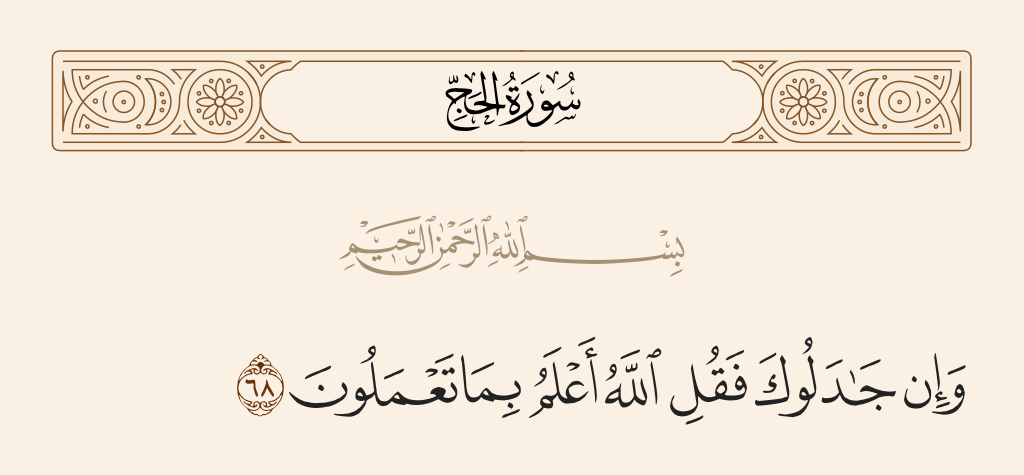 سُورَةُ الحَجِّ
بِسْمِ ٱللَّهِ ٱلرَّحْمَٰنِ ٱلرَّحِيمِ
وَإِن جَٰدَلُوكَ فَقُلِ ٱللَّهُ أَعْلَمُ بِمَا تَعْمَلُونَ ٦٨